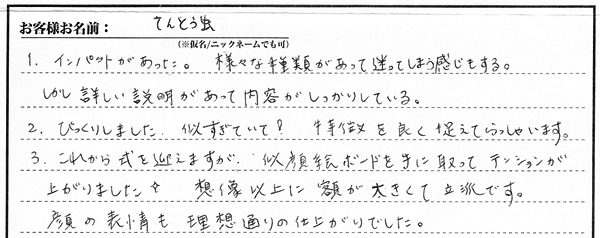 お客様お名前： てんとう虫
（※仮名/ニックネームでも可）
1. インパットがあった。 様々な種類があって迷ってしまう感じもする。
しかし 詳しい説明があって内容がしっかりしている。
2. びっくりしました. 似すぎていて？ 特徴を良く捉えてらっしゃいます。
3. これから式を迎えますが、似顔絵ボードを手に取ってテンションが
上がりました☆ 想像以上に額が大きくて立派です。
顔の表情も理想通りの仕上がりでした。